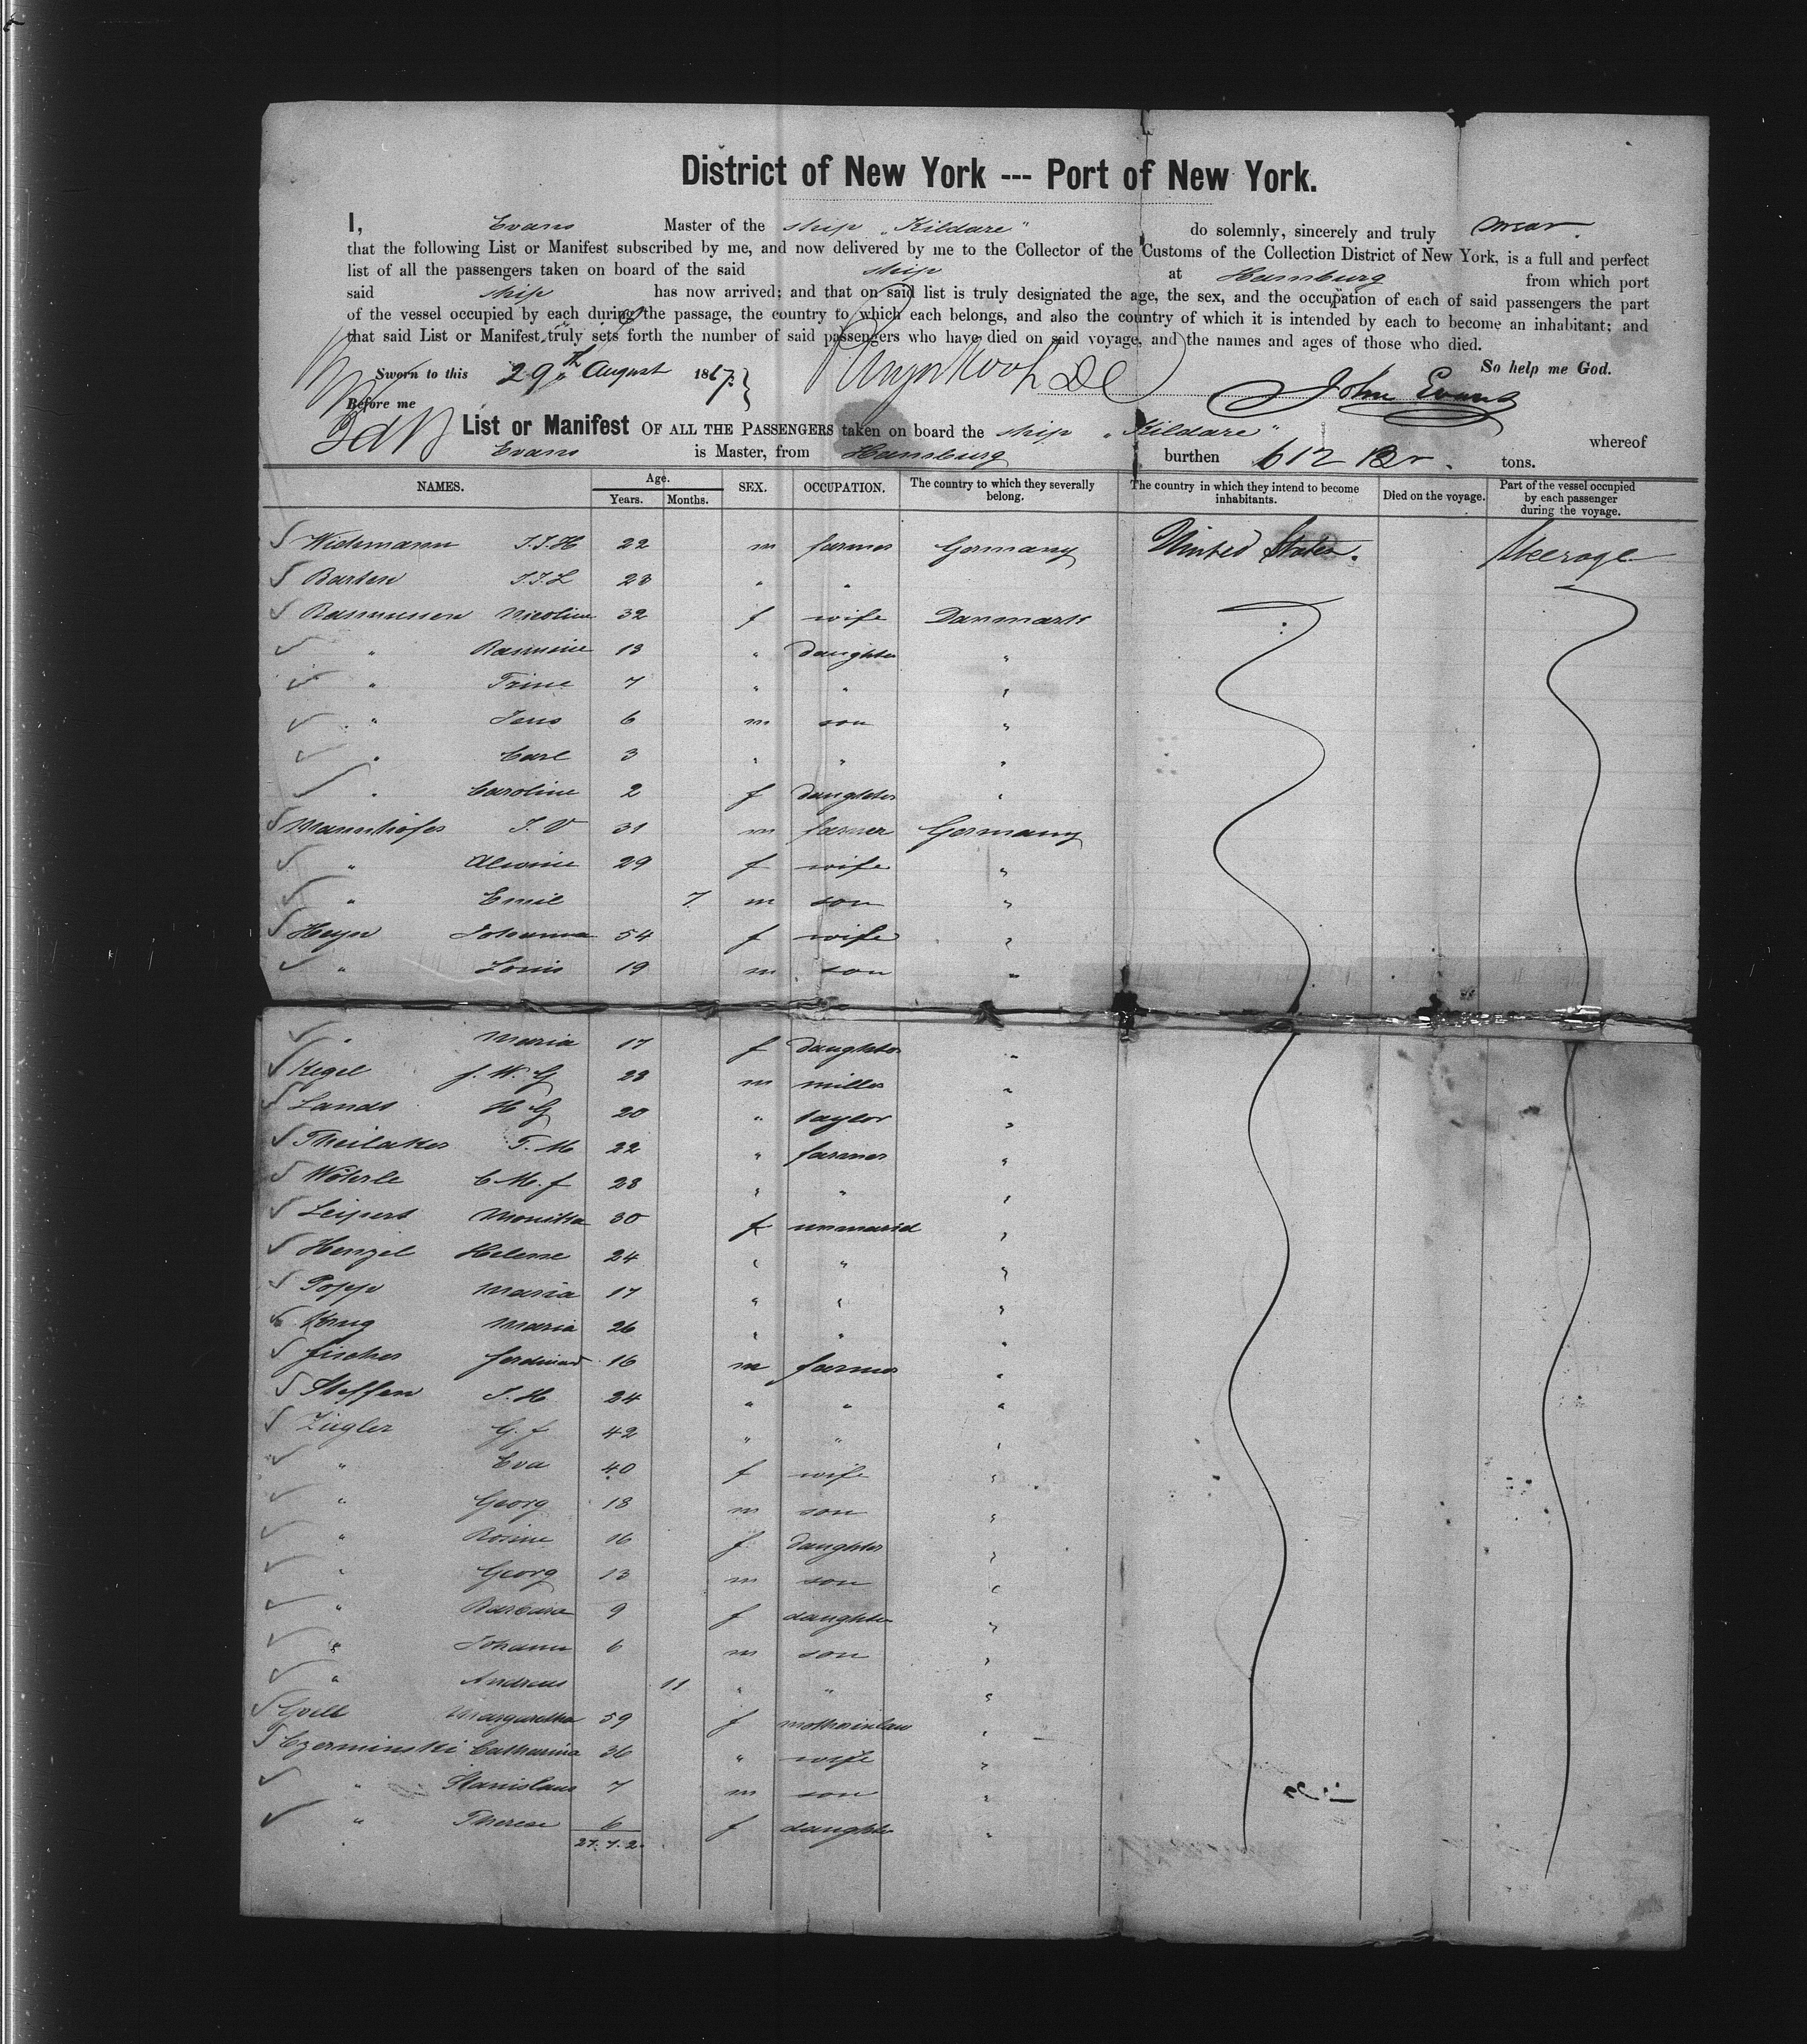 District of New York --- Port of New York.
I, Evans Master of the ship „Kildare" do solemnly, sincerely and truly swear.
that the following List or Manifest subscribed by me, and now delivered by me to the Collector of the Customs of the Collection District of New York, is a full and perfect
list of all the passengers taken on board of the said ship at Hamburg from which port
said ship has now arrived; and that on said list is truly designated the age, the sex, and the occupation of each of said passengers the part
of the vessel occupied by each during the passage, the country to which each belongs, and also the country of which it is intended by each to become an inhabitant; and
that said List or Manifest truly sets forth the number of said passengers who have died on said voyage, and the names and ages of those who died.
So help me God.
Sworn to this 29th August 1867.
John Evans
Before me
List or Manifest OF ALL THE PASSENGERS taken on board the ship „Kildare" whereof
Evans is Master, from Hamburg burthen 612 tons.
NAMES. Age. Years. Months. SEX. OCCUPATION. The country to which they severally belong. The country in which they intend to become inhabitants. Died on the voyage. Part of the vessel occupied by each passenger during the voyage.
Widemann J.J.H 22 m farmer Germany United States. Steerage
Barten J.J.L 23 " "
Rasmussen Nicoline 32 f wife Danmark
" Rasmine 13 " daughter "
" Trine 7 " " "
" Jens 6 m son "
" Carl 3 " " "
" Caroline 2 f daughter "
Mannhöfer J. V 31 m farmer Germany
" Alwine 29 f wife "
" Emil 7 m son "
Heyn Johanna 54 f wife "
" Louis 19 m son "
" Maria 17 f daughter "
Kegel f. W. G 23 m miller "
Landt H G 20 " taylor "
Theilaker T. M 22 " farmer "
Wöhrle C M. f 23 " " "
Leipert Monika 30 f unmarid "
Henzel Helene 24 " " "
Popp Maria 17 " " "
Krug Maria 26 " " "
fischer ferdinand 16 m farmer "
Steffen J. H. 24 " " "
Ziegler G. f 42 " " "
" Eva 40 f wife "
" Georg 18 m son "
" Rosine 16 f daughter "
" Georg 13 m son "
" Barbara 9 f daughter "
" Johann 6 m son "
" Andreas 11 " " "
Margaretha 59 f motherinlaw "
Czerminski Catharina 36 " wife "
" Stanislaus 7 m son "
" Therese 6 f daughter "
27. 7. 2.